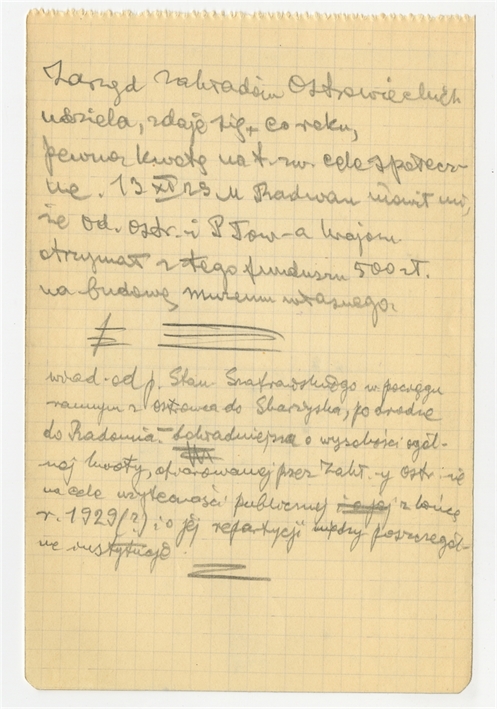 Zarząd Zakładów Ostrowieckich
udziela, zdaje się, co roku,
pewną kwotę na t. zw. cele społecz-
ne. 13 XI 29 M Radwan mówił mi,
że Od. Ostr. i P Tow-a Krajozn.
otrzymał z tego funduszu 500 zł.
na budowę muzeum własnego.
wiad. od p. Stan. Szafrańskiego w pociągu
rannym z Ostrowca do Skarżyska, po drodze
do Radomia. - dokładniejsza o wysokości ogól-
nej kwoty, ofiarowanej przez Zakł-y Ostr-ie
na cele użyteczności publicznej z końcem
r. 1929(?) i o jej repartycji między poszczegól-
ne instytucje